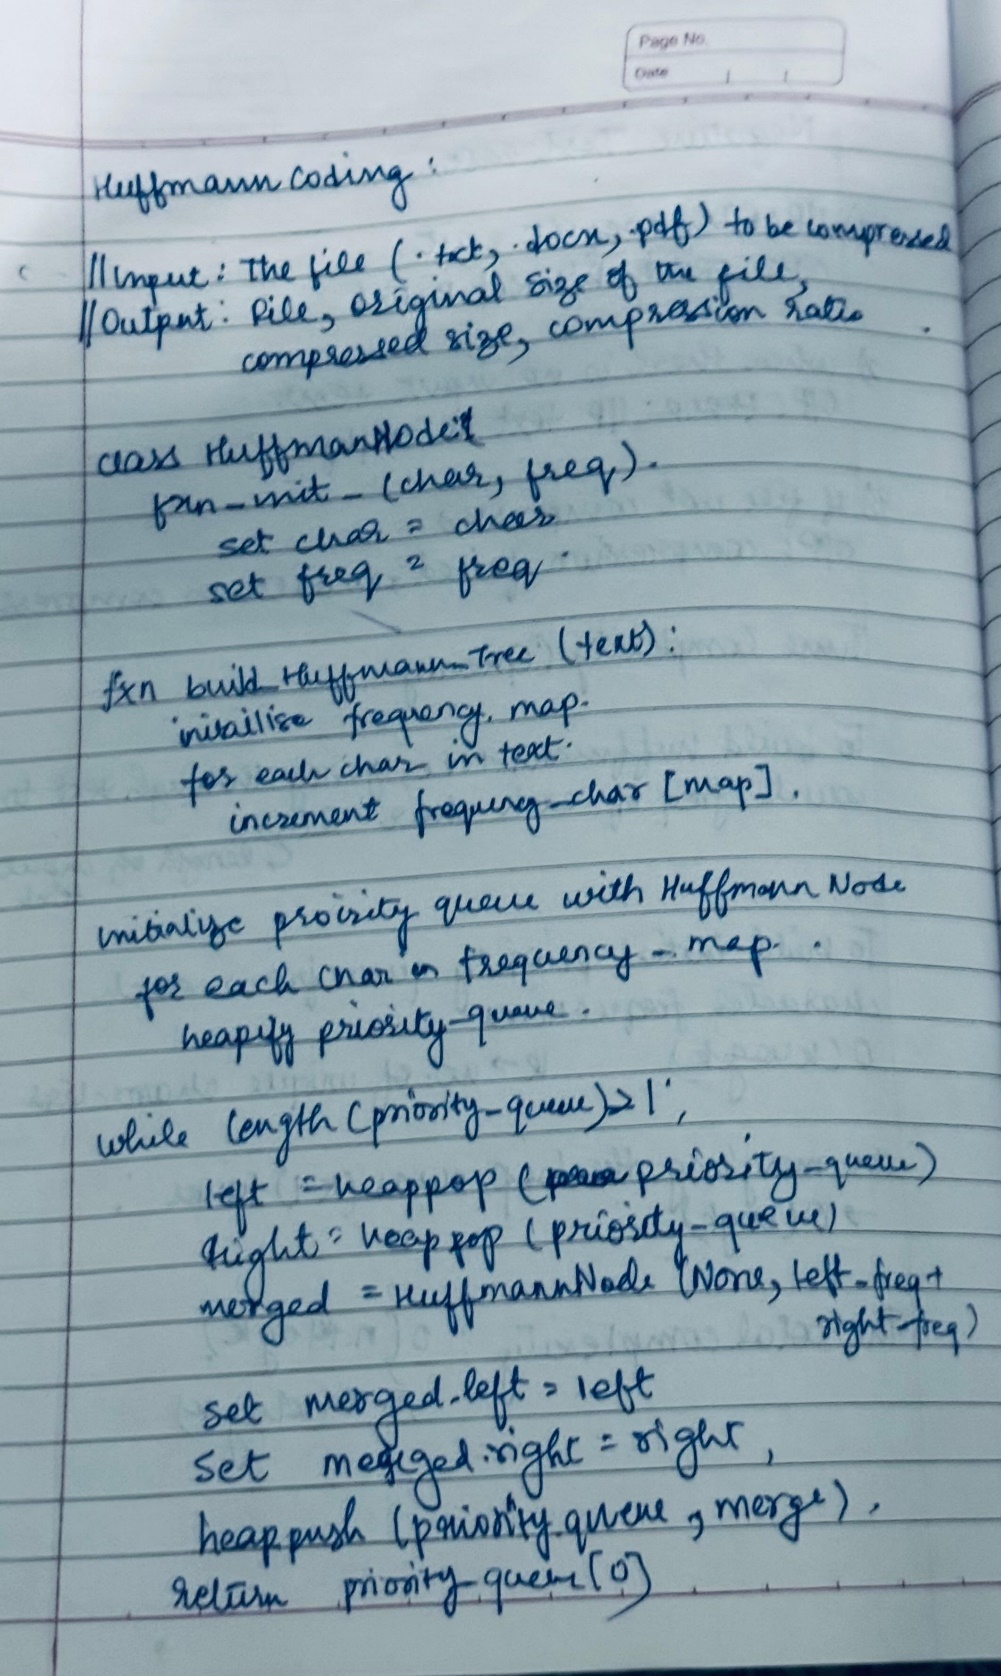 Page No.
Date
Huffmann Coding :
//Input : The file (.txt, .docx, .pdf) to be compressed
//Output : File, original size of the file,
compressed size, compression ratio
class HuffmanNode:
fxn_init_(char, freq).
set char = char
set freq = freq.
fxn build_Huffmann_Tree (text) :
initailise frequency. map.
for each char in text.
increment frequency_char [map].
initialize proirity queue with Huffmann Node
for each char in frequency_map.
heapify priority_queue.
while length (priority_queue) > 1 ;
left = heappop ( priority_queue)
right = heappop (priority_queue)
merged = HuffmannNode (None, left_freq +
right_freq)
set merged.left = left
set merged.right = right,
heappush (priority.queue , merge).
return priority_queue[0]